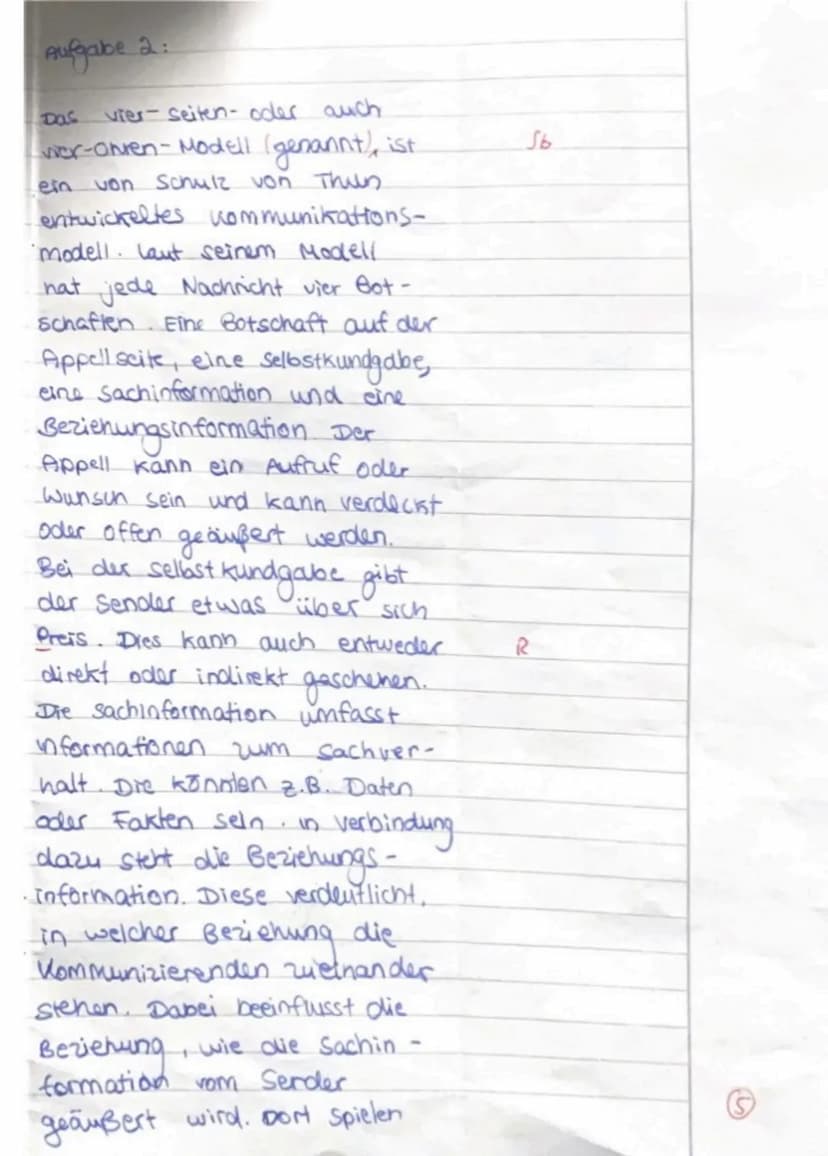 Aufgabe 2:
Das vier-seiten- oder auch
vier-Ohren-Modell (genannt), ist Sb
ein von Schulz von Thun
entwickeltes Kommunikations-
modell. Laut seinem Modell
hat jede Nachricht vier Bot-
schaften. Eine Botschaft auf der
Appellseite, eine Selbstkundgabe,
eine Sachinformation und eine
Beziehungsinformation. Der
Appell kann ein Aufruf oder
Wunsch sein und kann verdeckt
oder offen geäußert werden.
Bei der Selbstkundgabe gibt
der Sender etwas über sich
Preis. Dies kann auch entweder R
direkt oder indirekt geschehen.
Die Sachinformation umfasst
Informationen zum Sachver-
halt. Die könnten z.B. Daten
oder Fakten sein. in Verbindung
dazu steht die Beziehungs-
information. Diese verdeutlicht,
in welcher Beziehung die
Kommunizierenden zueinander
stehen. Dabei beeinflusst die
Beziehung, wie die Sachin-
formation vom Sender
geäußert wird. Dort spielen 5